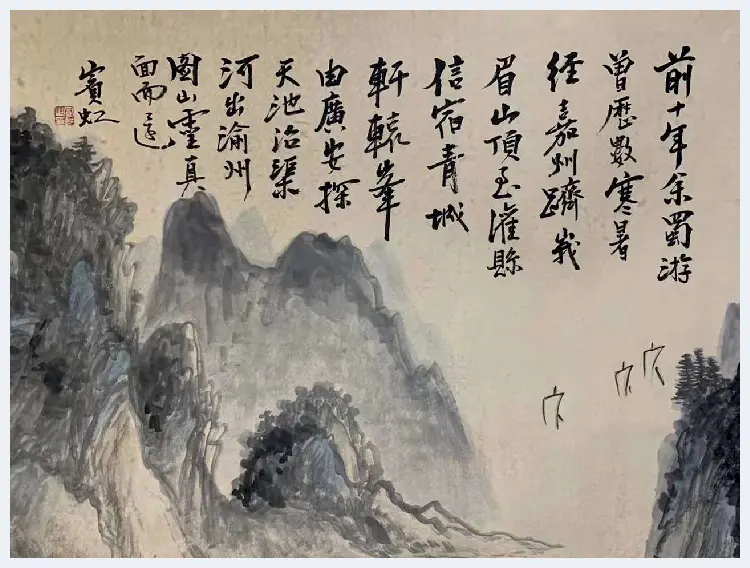 前十年余蜀游
曾歷數寒暑
經嘉州躋峩
眉山頂至灌縣
信宿青城
軒轅峯
由廣安探
天池沿渠
河出渝州
圖山靈真
面而還
賓虹